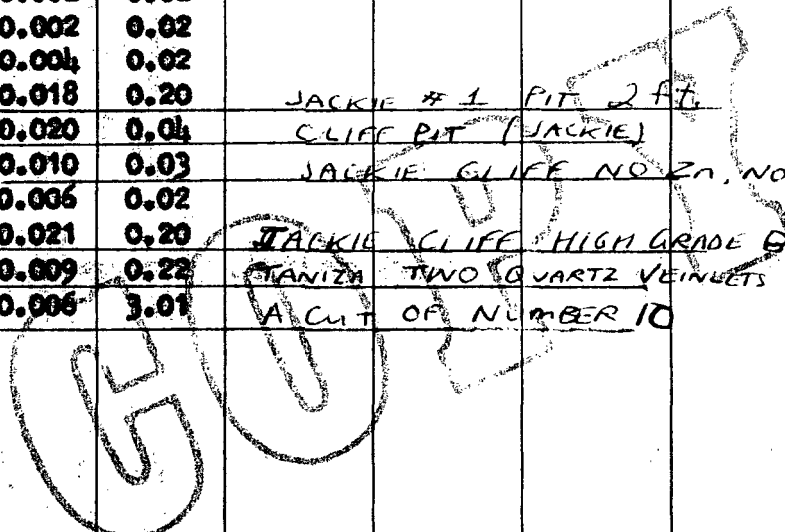 0.002 0.02
0.004 0.02
0.018 0.20 JACKIE # 1 PIT 2 ft.
0.020 0.04 CLIFF PIT (JACKIE)
0.010 0.03 JACKIE CLIFF NO Zn, NO
0.006 0.02
0.021 0.20 JACKIE CLIFF HIGH GRADE
0.009 0.22 TANIZA TWO QUARTZ VEINLETS
0.006 3.01 A CUT OF NUMBER 10
COPY